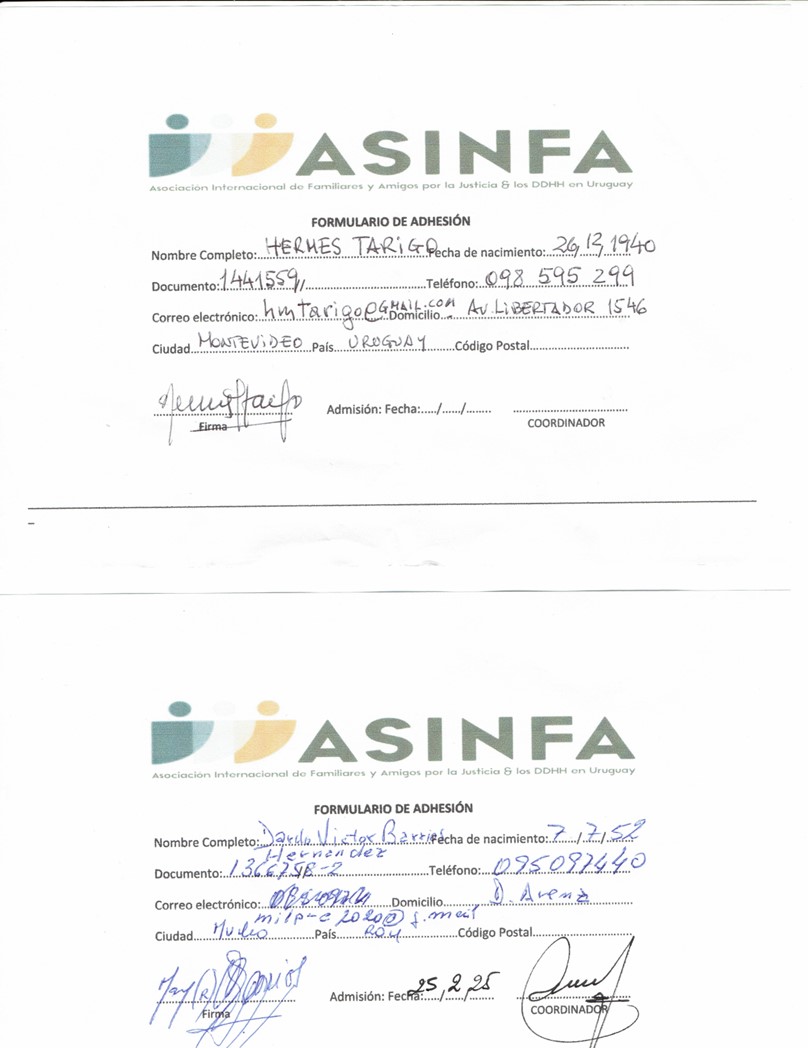 ASINFA
Asociación Internacional de Familiares y Amigos por la Justicia & los DDHH en Uruguay
FORMULARIO DE ADHESIÓN
Nombre Completo: HERMES TARIGO Fecha de nacimiento: 26/12/1940
Documento: 1441559// Teléfono: 098 595 299
Correo electrónico: hmtarigo@GMAIL.COM Domicilio AV. LIBERTADOR 1546
Ciudad MONTEVIDEO País URUGUAY Código Postal
Admisión: Fecha:...../....../........
Firma COORDINADOR
ASINFA
Asociación Internacional de Familiares y Amigos por la Justicia & los DDHH en Uruguay
FORMULARIO DE ADHESIÓN
Nombre Completo: Victor Fecha de nacimiento: 7/7/52
Hernandez
Documento: Teléfono:
Correo electrónico: Domicilio D. Arena
Ciudad País ROU Código Postal
Admisión: Fecha: 25/2/25
Firma COORDINADOR